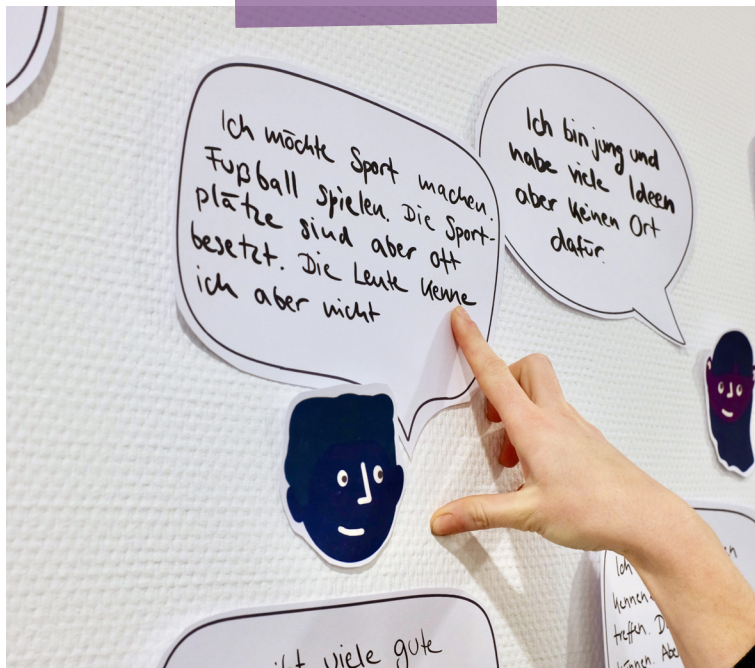 Ich möchte Sport machen.
Fußball spielen. Die Sport-
plätze sind aber oft
besetzt. Die Leute kenne
ich aber nicht
Ich bin jung und
habe viele Ideen
aber keinen Ort
dafür.
viele gute
Ich
kennen
treffen. D
kennen. Abe